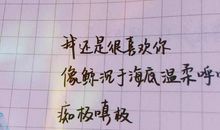 我还是很喜欢你
像鲸沉于海底温柔呼
痴极嗔极